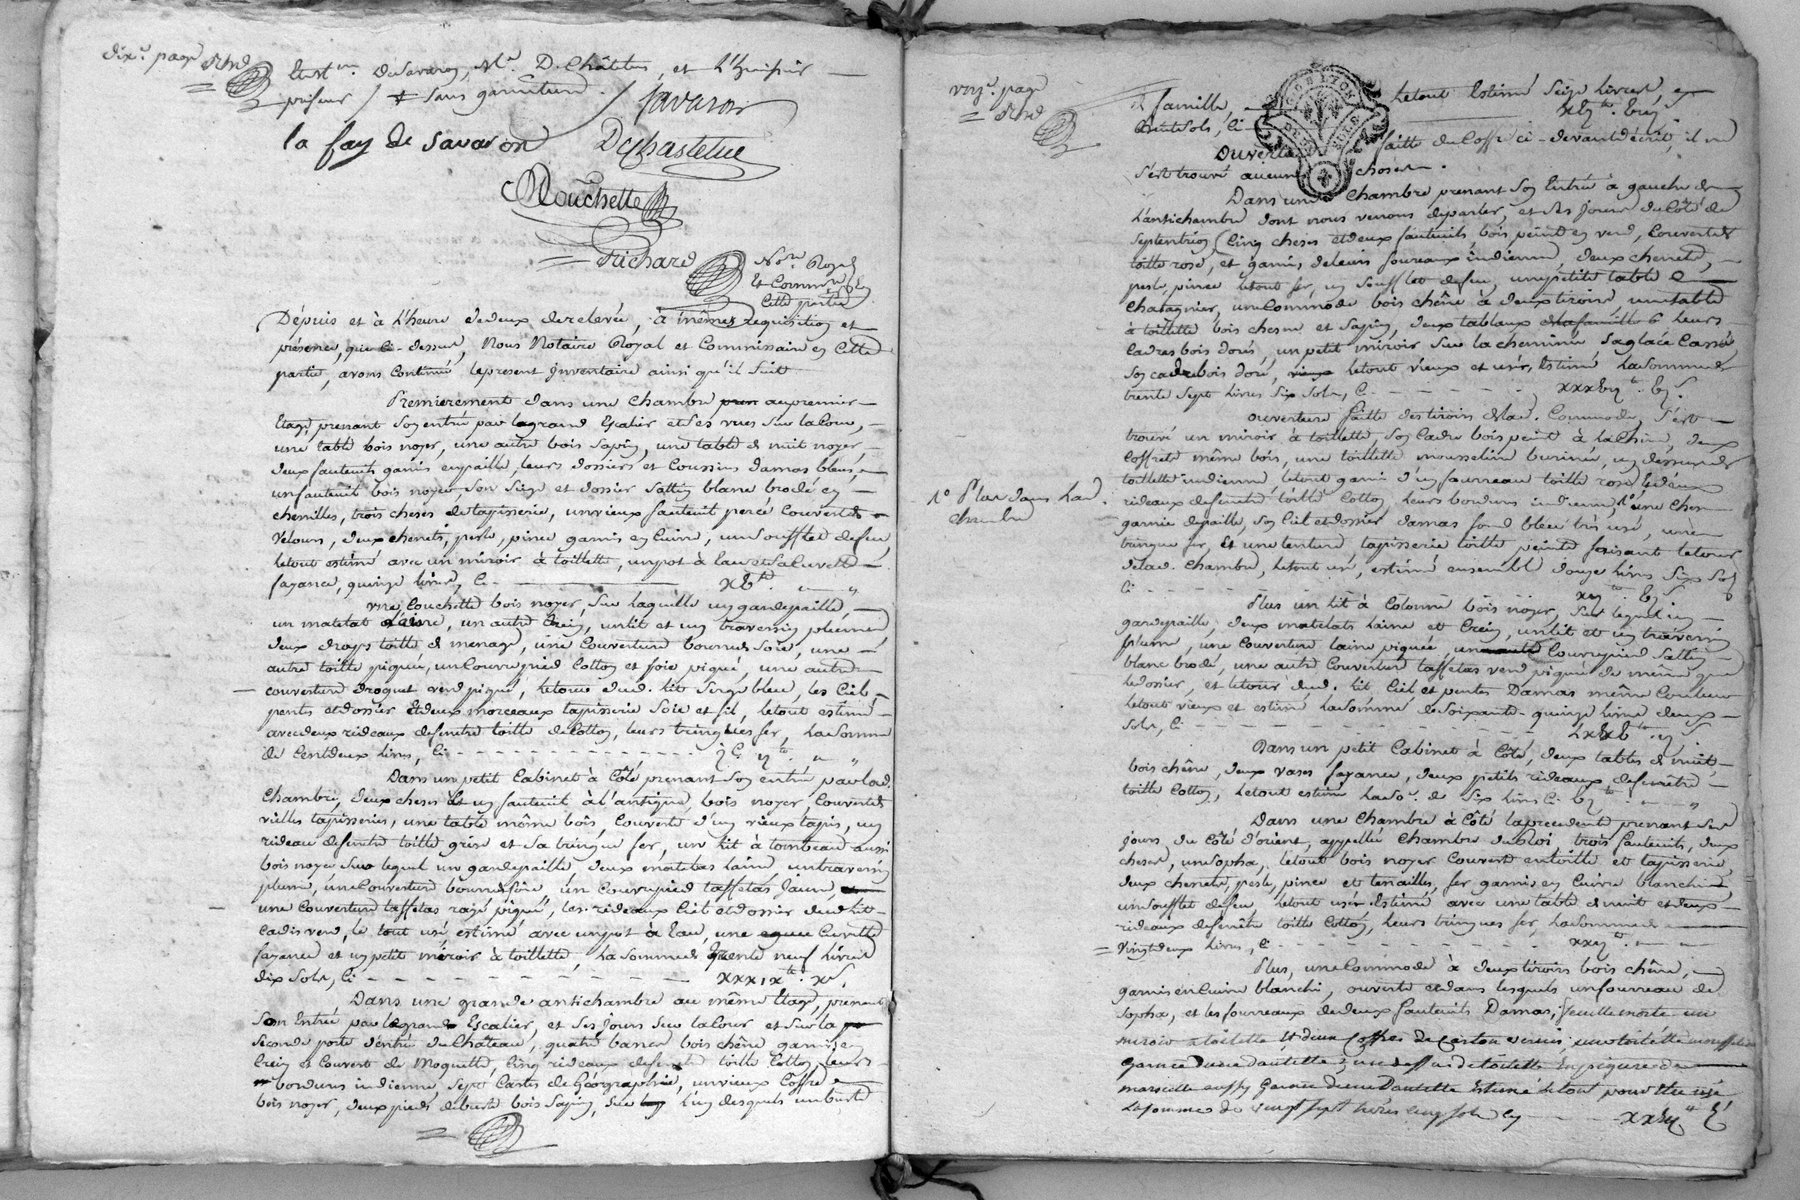 dix.e page
led.t Sr. De Savaron, Mr. D. Châtelus, et L'huissier
priseur / sans garniture.
Savaron
la fay de Savaron Dechastelue
Mouchette
Richard
No.re Royal
et Commre. en
Cette partie
Dépuis et à L'heure de deux de relevée, à mêmes requisition et
présence, que Ci-dessus, Nous Notaire Royal et Commissaire en Cette
partie, avons Continué le présent Inventaire ainsi qu'il suit
Premierement dans une Chambre au premier
Etage, prenant son entrée par le grand Escalier et ses vues sur la Cour,
une table bois noyer, une autre bois sapin, une table de nuit noyer,
deux fauteuils garnis en paille, leurs dossiers et Coussins Damas bleu,
un fauteuil bois noyer, son siege et dossier Sattin blanc brodé en
chenilles, trois cheses de tapisserie, un vieux fauteuil percé Couvert de
Velours, deux chenets, pesle, pince garnis en Cuivre, un soufflet de feu,
le tout estimé avec un miroir à toillette, un pot à l'eau et sa Cuvette
fayance, quinze livres, Ci - xv tt. " "
une Couchette bois noyer, sur laquelle un gardepaille,
un matelat Laine, un autre Crein, un lit et un traversin plumes,
deux draps toille de menage, une Couverture bourre de soie, une
autre toille piquée, un Couvrepied Cotton et soie piqué, une autre
couverture droguet verd piqué, le tour dud. lit serge bleu, les Ciel,
pentes et dossier et deux morceaux tapisserie soie et fil, le tout estimé
avec deux rideaux de fenetre toille de Cotton, leurs tringles fer, la somme
de Cent deux livres, Ci - - - j C. ij tt. " "
Dans un petit Cabinet à Côté prenant son entrée par lad.
Chambre, deux cheses et un fauteuil à l'antique, bois noyer, Couverts de
vielles tapisseries, une table même bois, Couverte d'un vieux tapis, un
rideau de fenetre toille grise et sa tringue fer, un lit à tombeau aussi
bois noyer sur lequel un gardepaille, deux matelas laine, un traversin
plume, une Couverture bourre de soie, un Couvrepied taffetas Jaune,
une Couverture taffetas rayé piqué, les rideaux Ciel et dossier dud. lit
Cadis verd, le tout usé estimé avec un pot à l'eau, une Cuvette
fayance et un petit miroir à toillette, la somme de trente neuf livres
dix sols, Ci - - - xxxix tt. x s.
Dans une grande antichambre au même Etage, prenant
son Entrée par le grand Escalier, et ses jours sur la Cour et sur la
seconde porte d'entrée du Château, quatre bancs bois chêne garnis en
Crein et Couvert de Moquette, Cinq rideaux de fenetre toille Cotton, leurs
bordures indienne, Sept Cartes de Géographie, un vieux Coffre
bois noyer, deux pieds de buste bois Sapin, sur l'un desquels un buste
onz.e page
de famille, Le tout Estimé Seize Livres, et
Six Sols, Ci xvj tt. vj s.
Ouverture faitte du Coffre Ci-devant décrit, il ne
s'est trouvé aucune choses.
Dans une Chambre prenant son Entrée à gauche de
L'antichambre dont nous venons de parler, et ses jours du Côté de
Septentrion, Cinq cheses et deux fauteuils bois peint en verd, Couverts de
toille rose, et garnis de leurs foureaux indienne, deux chenets,
pesle, pince le tout fer, un soufflet de feu, une petite table
Chataignier, une Commode bois chêne à deux tiroirs, une table
à toillette bois chesne et sapin, deux tableaux de la famille 6 leurs
Cadres bois dorés, un petit miroir sur la cheminée sa glace Cassée
son cadre bois doré, le tout vieux et usé, Estimé la somme de
trente Sept livres Six Sols, Ci - - - xxxvij tt. vj s.
Ouverture faitte des tiroirs de lad. Commode, s'est
trouvé un miroir à toillette, son Cadre bois peint à la Chine, deux
Coffrets même bois, une toillette mousseline burinée, un dessus de
toillette indienne, le tout garni d'un fourreau toille rose, et deux
rideaux de fenetre toille Cotton, leurs bordures indienne, 1° une Chese
1° Plus dans lad.
chambre
garnie de paille, son Ciel et dossier damas fond bleu très usé, une
tringue fer, Et une tenture, tapisserie toille peinte faisant le tour
de lad. Chambre, le tout usé, estimé ensemble douze livres Six sols
Ci - - - xij tt. vj s.
Plus un lit à Colonne bois noyer, sur lequel un
gardepaille, deux matelats laine et Crein, un lit et un traversin
plume, une Couverture laine piquée, un Couvrepied Sattin
blanc brodé, une autre Couverture taffetas verd, piquée de même que
le dossier, et le tour dud. lit, Ciel et pentes Damas même Couleur
le tout vieux et estimé la somme de soixante-quinze livres deux
sols, Ci - - - Lxxv tt. ij s.
Dans un petit Cabinet à Côté, deux tables de nuit,
bois chêne, deux vases fayance, deux petits rideaux de fenêtre
toille Cotton, le tout estimé la so.e de Six livres Ci vj tt. " "
Dans une Chambre à Côté la precedente prenant ses
jours du Côté d'orient, appellée Chambre du Roi trois fauteuils, deux
cheses, un sopha, le tout bois noyer Couvert en toille et tapisserie,
deux chenets, pesle, pince et tenailles, fer garnis en Cuivre blanchi
un soufflet de feu, le tout usé Estimé avec une table de nuit et deux
rideaux de fenêtre toille Cotton, leurs tringues fer, la somme de
Vingt deux livres, Ci - - - xxij tt.
Plus, une Commode à deux tiroirs bois chêne,
garnis en Cuivre blanchi, ouverte et dans lesquels un fourreau de
sopha, et les fourreaux de deux fauteuils Damas, feuille morte un
miroir a toilette et deux Coffres de Carton vernis, une toilette mousseline
Garnie d'une dantelle, un dessus de toilette en piqure de
marseille aussy Garnie d'une Dantelle Estimé le tout pour être usé
La somme de vingt sept livres cinq sols cy xxvij tt. v s.